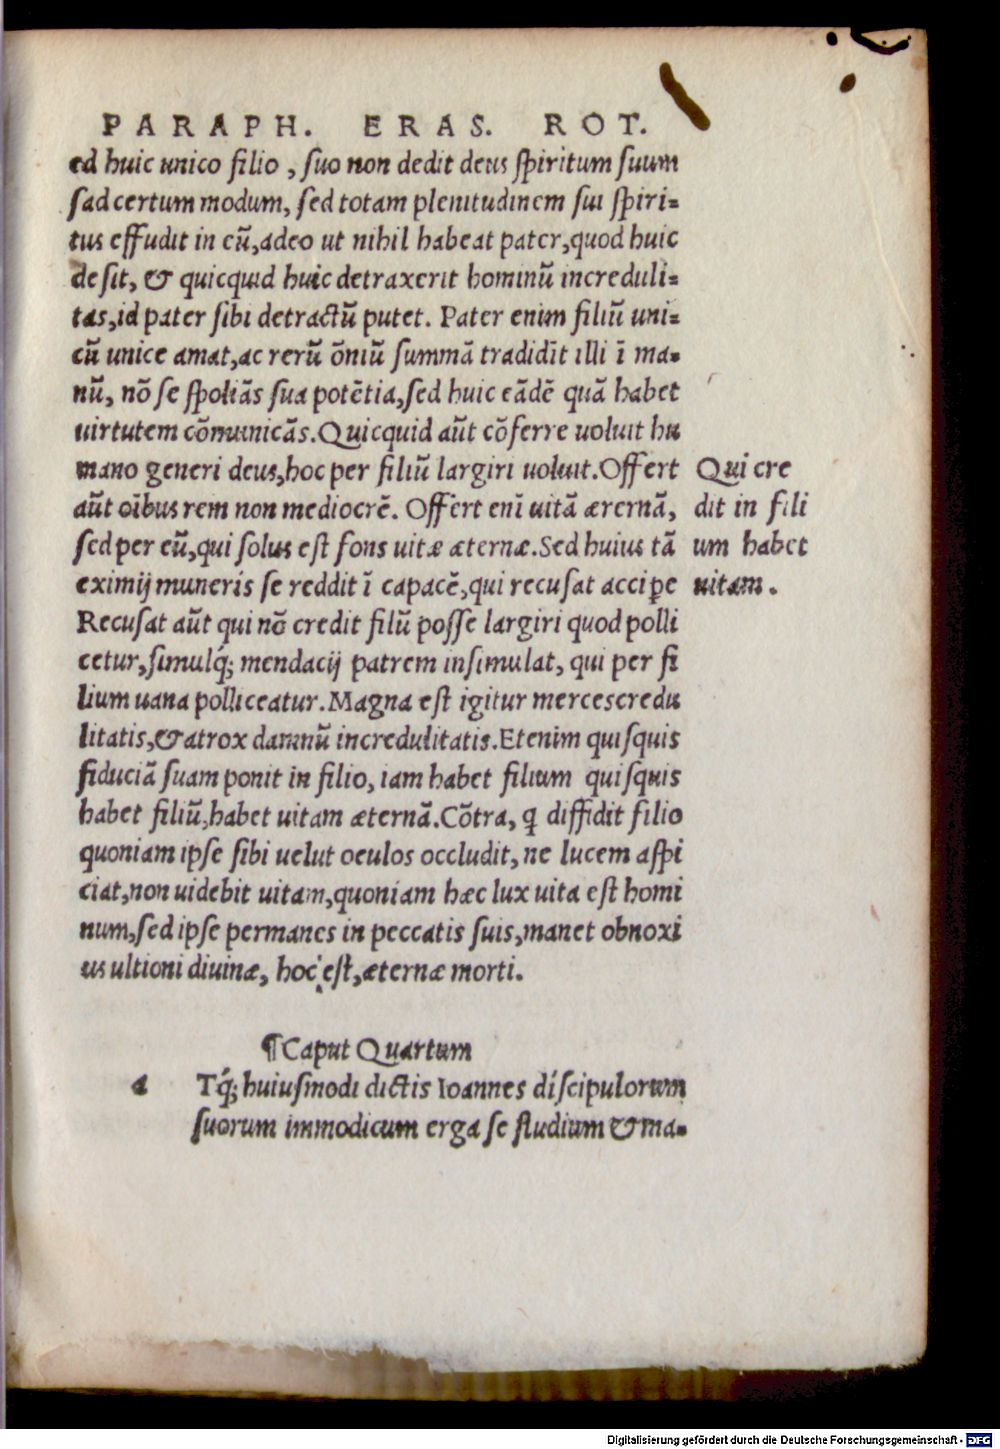 PARAPH. ERAS. ROT.
ed huic unico filio, suo non dedit deus spiritum suum
sad certum modum, sed totam plenitudinem sui spiri=
tus effudit in eũ, adeo ut nihil habeat pater, quod huic
desit, & quicquid huic detraxerit hominũ increduli=
tas, id pater sibi detractũ putet. Pater enim filiũ uni=
cũ unice amat, ac rerũ õniũ summã tradidĩt illi ĩ ma=
nũ, nõ se spoliãs sua potẽtia, sed huic eãdẽ quã habet
uirtutem cõmunicãs. Quicquid aũt cõferre uoluit hu
mano generi deus, hoc per filiũ largiri uoluit. Offert
aũt oĩbus rem non mediocrẽ. Offert enĩ uitã ærernã,
sed per eũ, qui solus est fons uitæ æternæ. Sed huius tã
eximij muneris se reddit ĩ capacẽ, qui recusat accipe
Recusat aũt qui nõ credit filũ posse largiri quod polli
cetur, simulq́; mendacij patrem insimulat, qui per fi
lium uana polliceatur. Magna est igitur mercescredu
litatis, & atrox damnũ incredulitatis. Etenim quisquis
fiduciã suam ponit in filio, iam habet filium quisquis
habet filiũ, habet uitam æternã. Cõtra, q diffidit filio
quoniam ipse sibi uelut oculos occludit, ne lucem aspi
ciat, non uidebit uitam, quoniam hæc lux uita est homi
num, sed ipse permanes in peccatis suis, manet obnoxi
us ultioni diuinæ, hoc est, æternæ morti.
Qui cre
dit in fili
um habet
uitam.
¶Caput Quartum
a Tq́; huiusmodi dictis Ioannes díscipulorum
suorum immodicum erga se studium & ma=
Digitalisierung gefördert durch die Deutsche Forschungsgemeinschaft - DFG